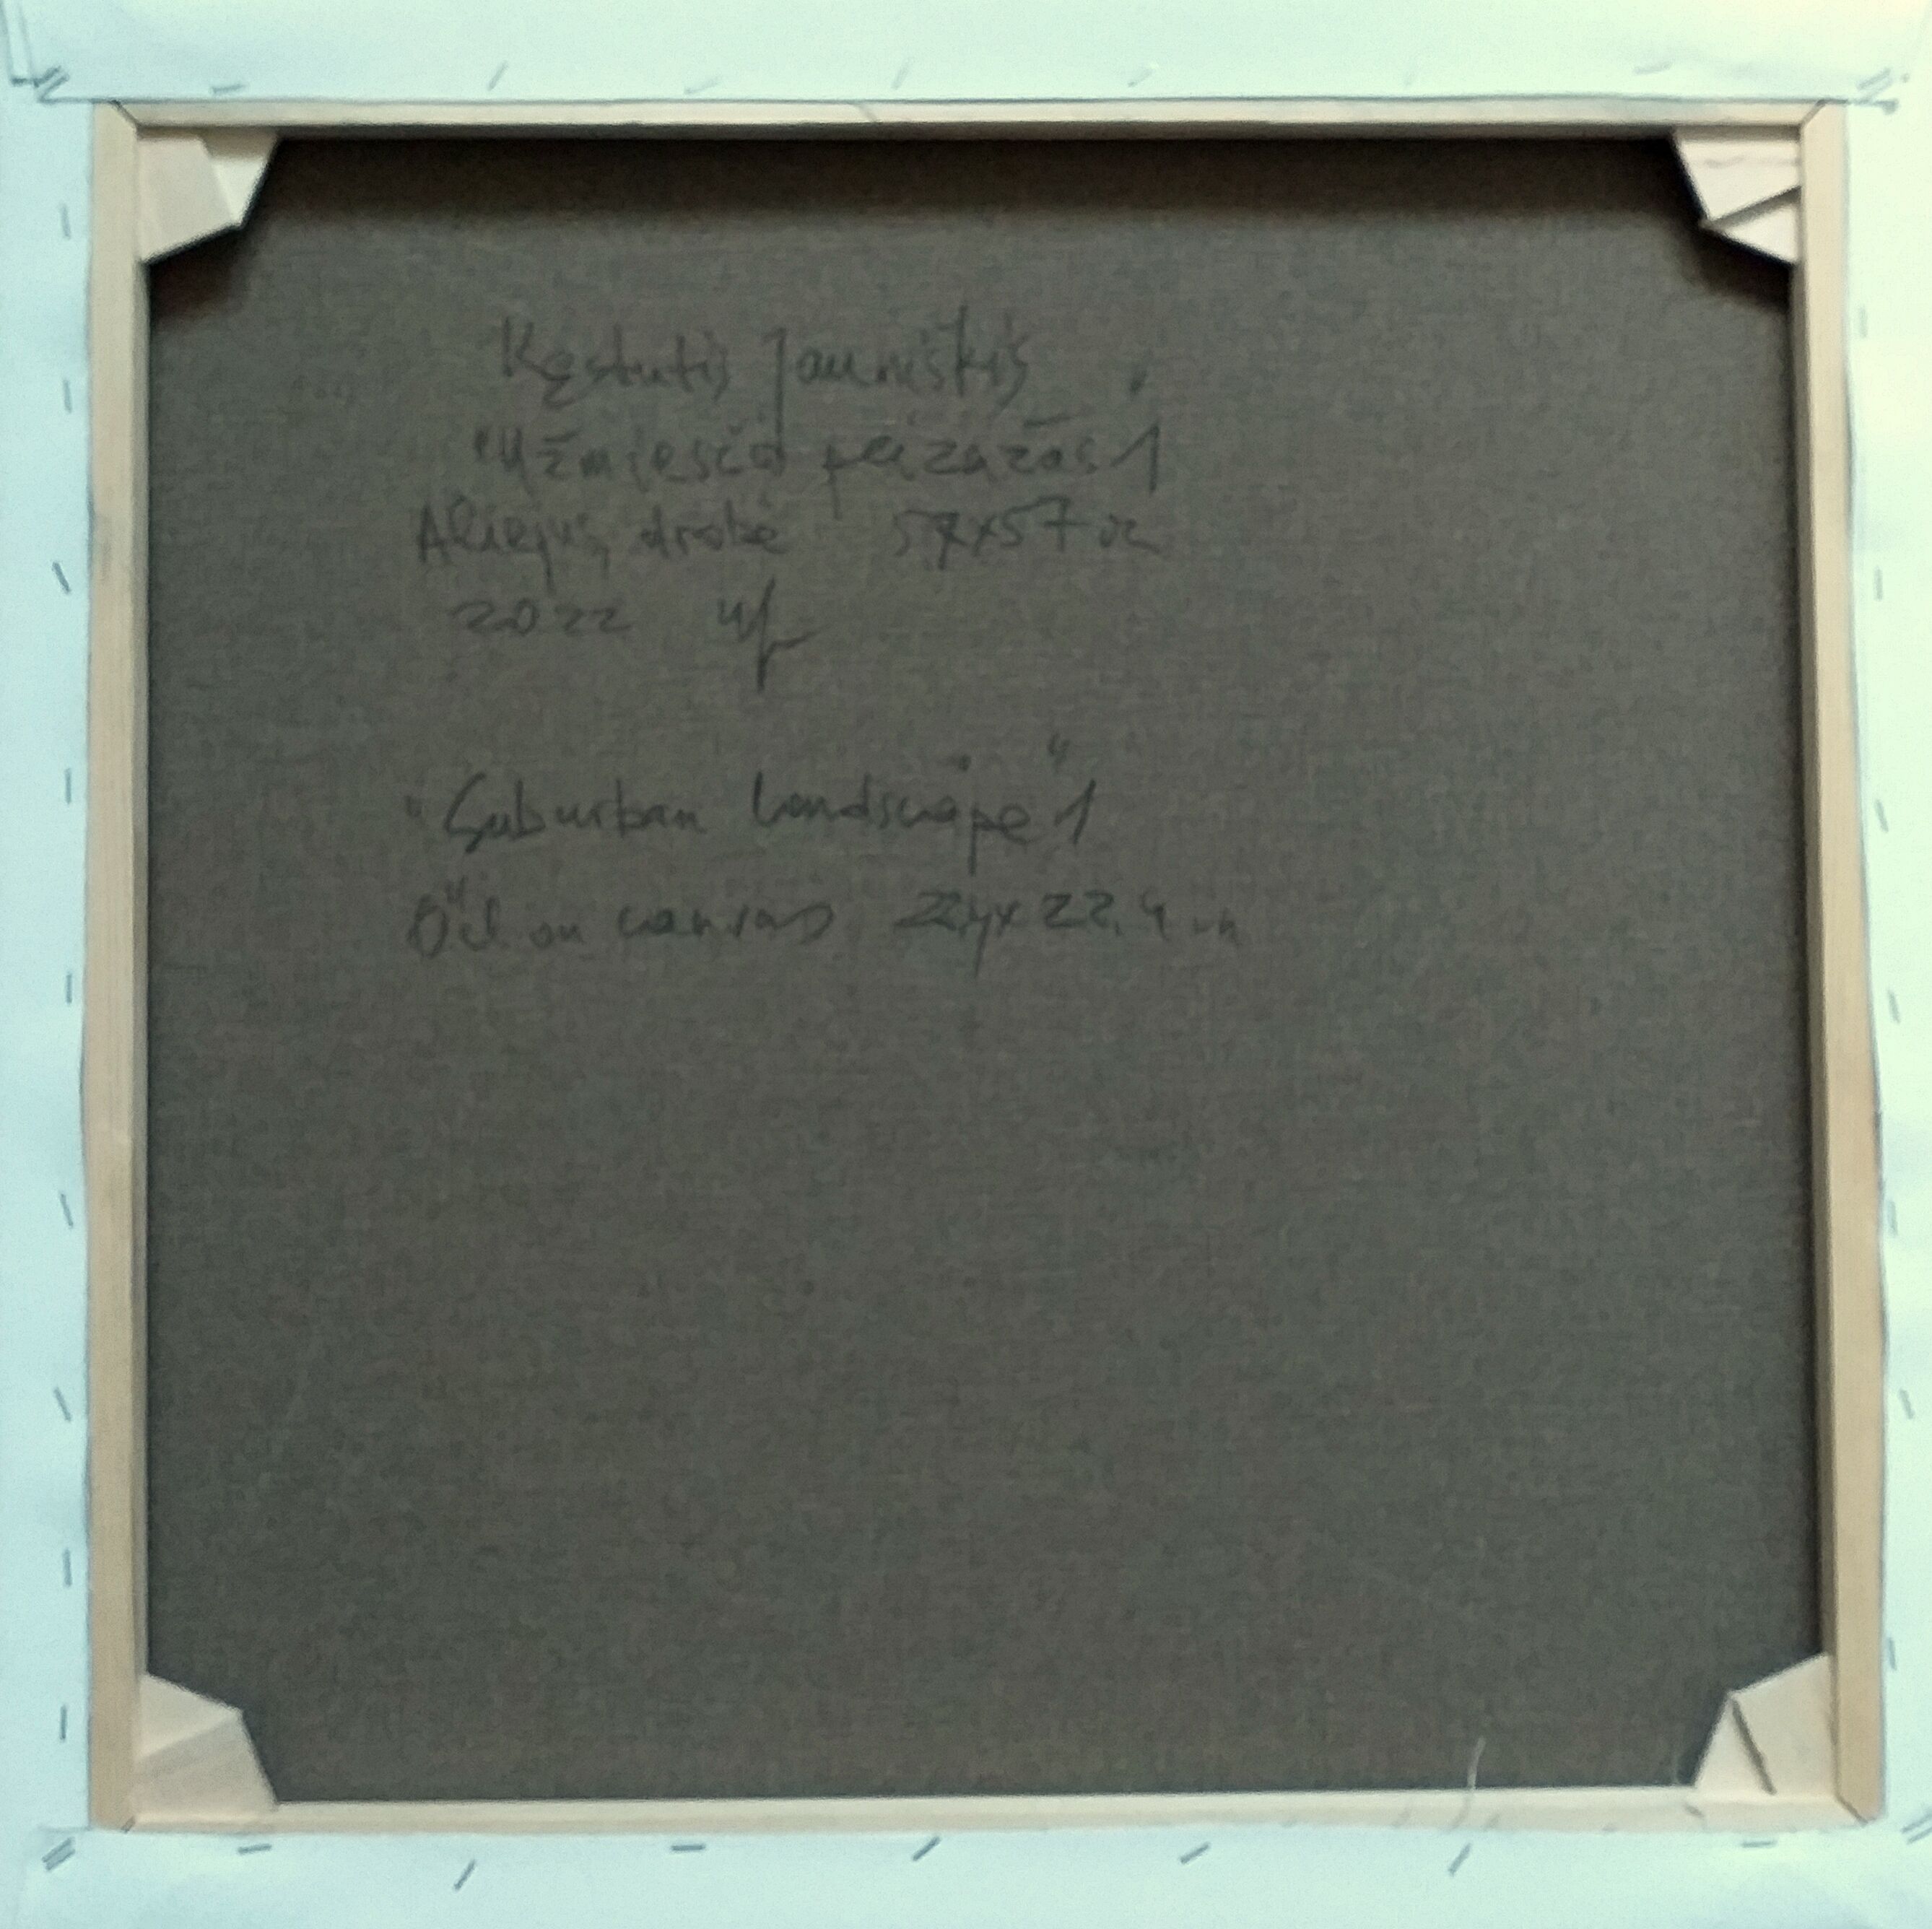 Kęstutis Jauniškis
"Užmiesčio peizažas" 1
Aliejus, drobė 57x57
2022
"Suburban landscape" 1
Oil on canvas 22,4x22,4 in